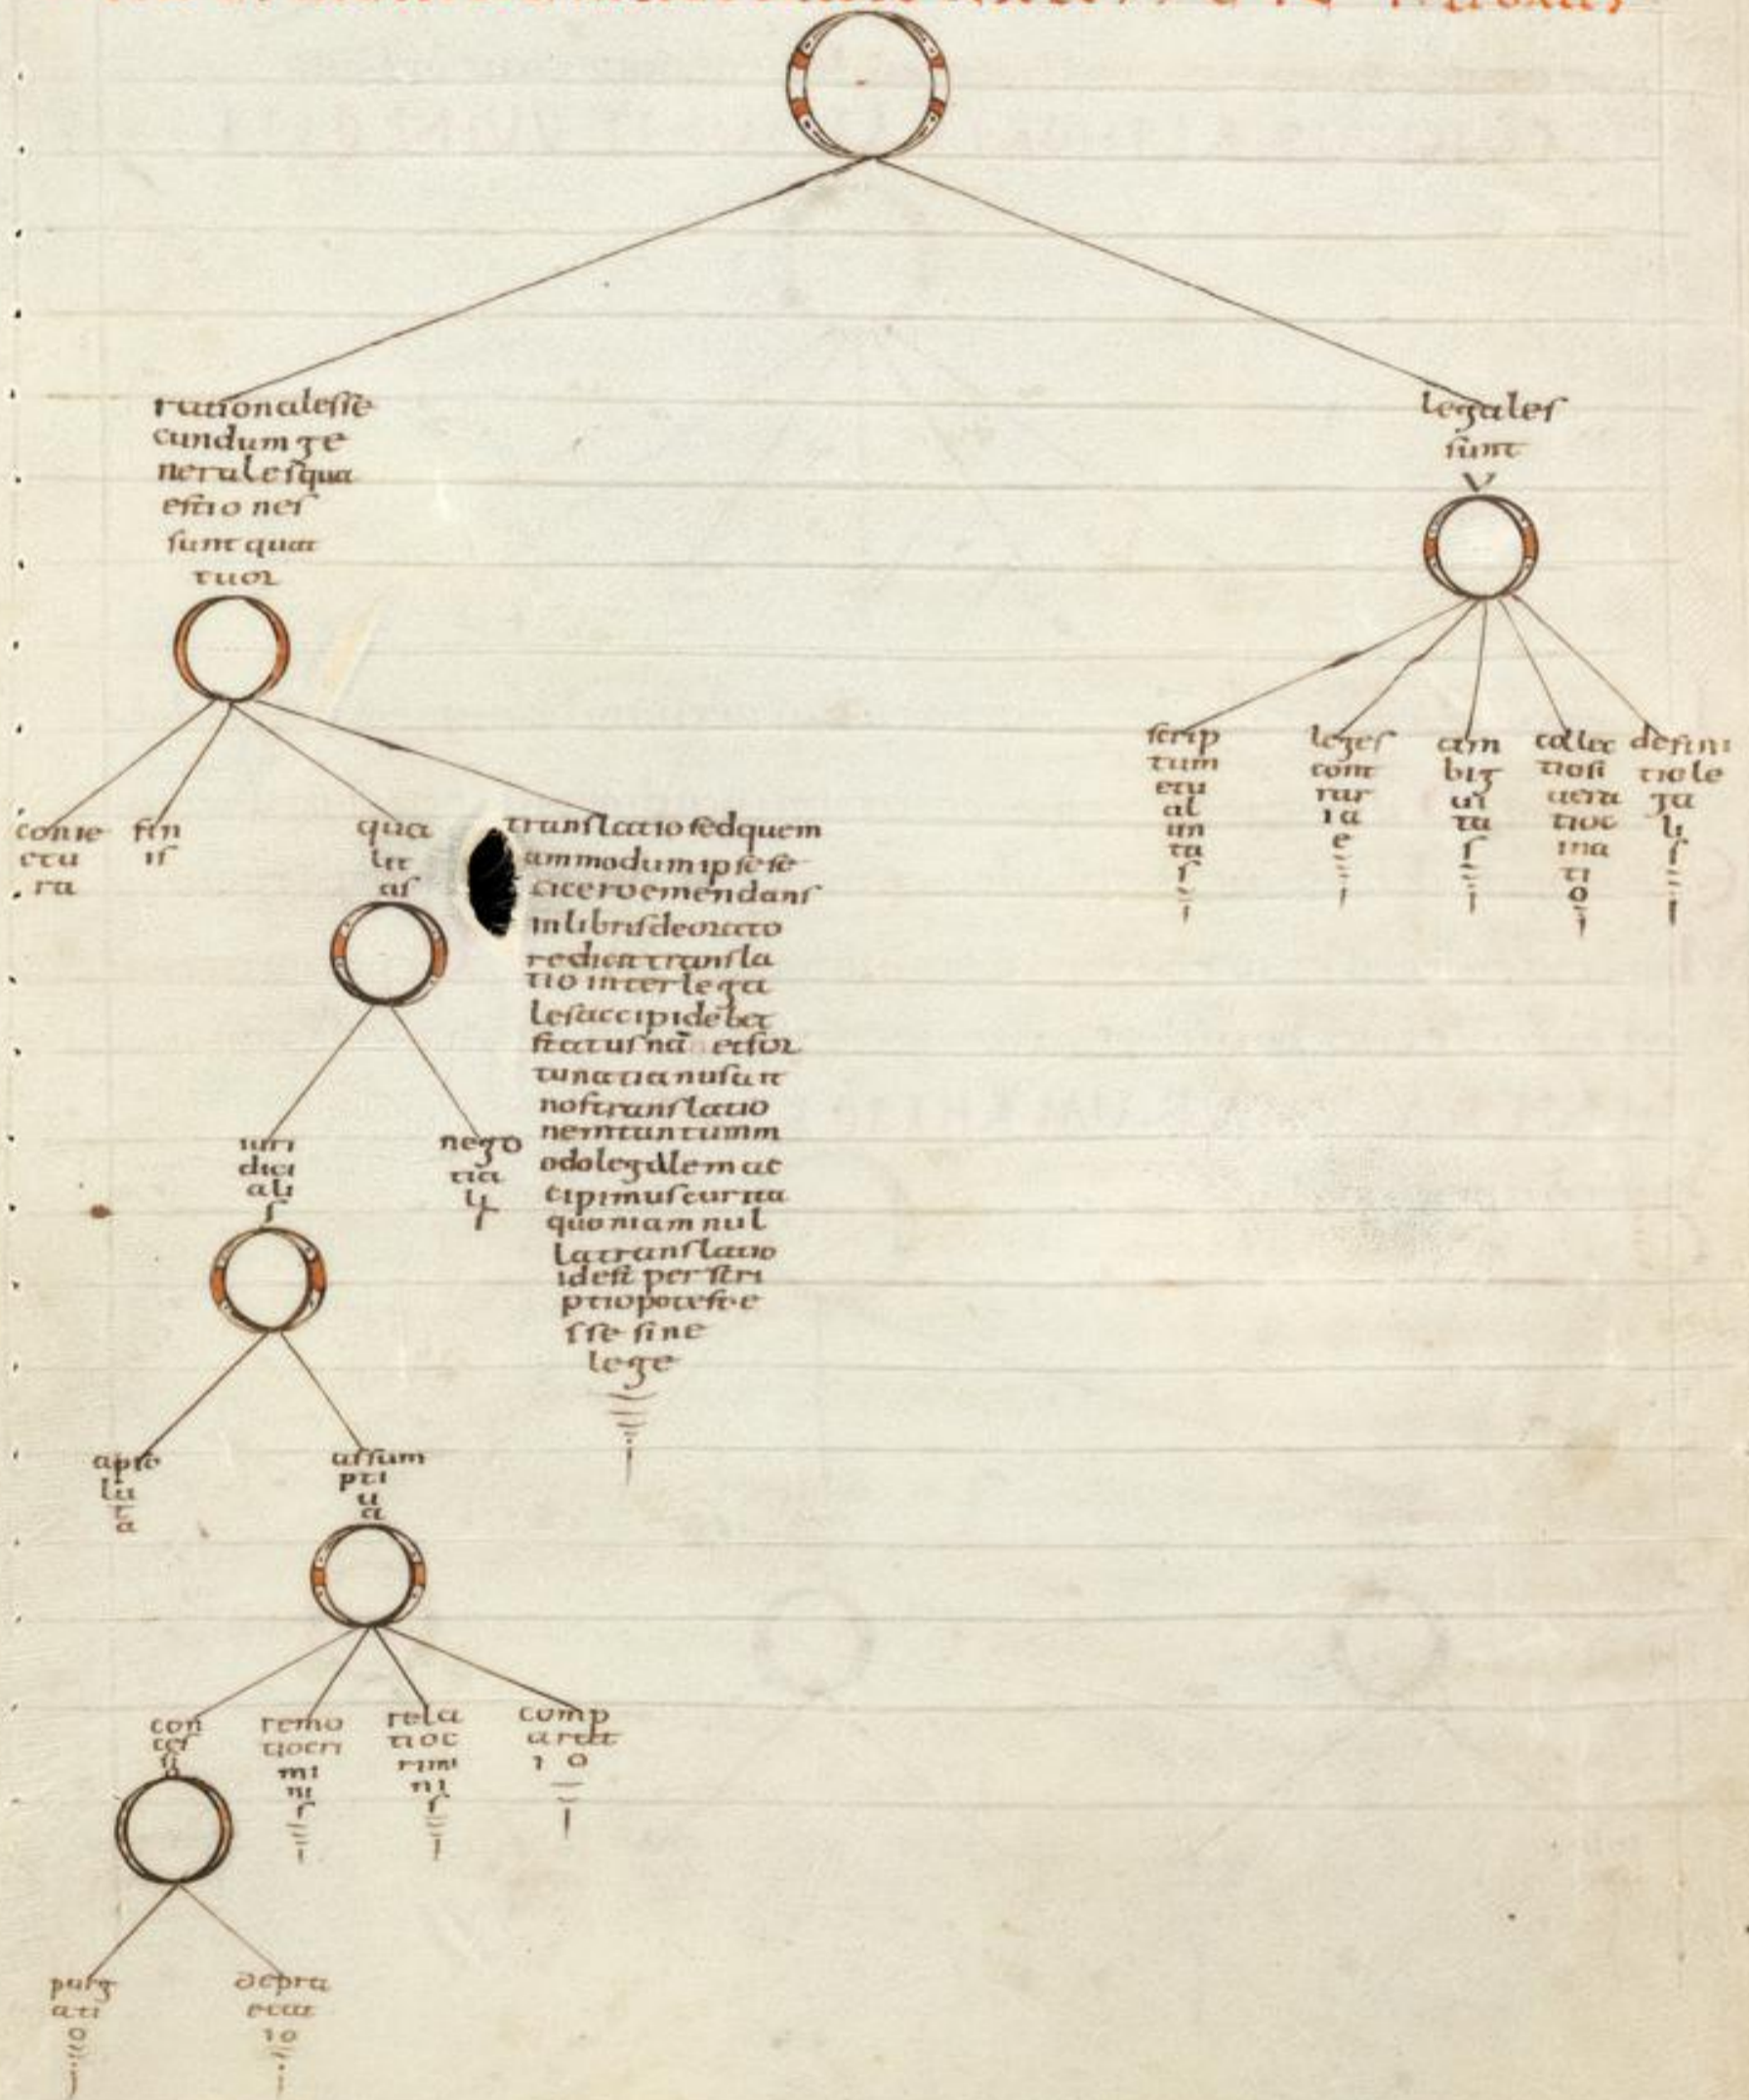 rationalesse
cundum ge
neralesqua
estiones
sunt quat
tuor
legales
sunt
V
conie
ctu
ra
fin
is
qua
lit
as
translatio sedquem
ammodum ipse se
cicero emendans
inlibrisdeorato
redicit transla
tio interlega
lesaccipidebet
status nā etfor
tunatianusait
nostranslatio
nemtantumm
odolegalemac
cipimuscurita
quoniam nul
latranslatio
idest perscri
ptiopoteste
sse sine
lege
scrip
tum
etu
al
un
ta
s
leges
cont
rar
ia
e
am
big
ui
ta
s
collec
tiosi
uera
tioc
ina
ti
o
defini
tiole
ga
li
s
iuri
dici
ali
s
nego
tia
li
s
apso
lu
ta
assum
pti
u
a
con
ces
si
o
remo
tiocri
mi
ni
s
rela
tioc
rimi
ni
s
comp
arat
io
purg
ati
o
depra
ecat
io